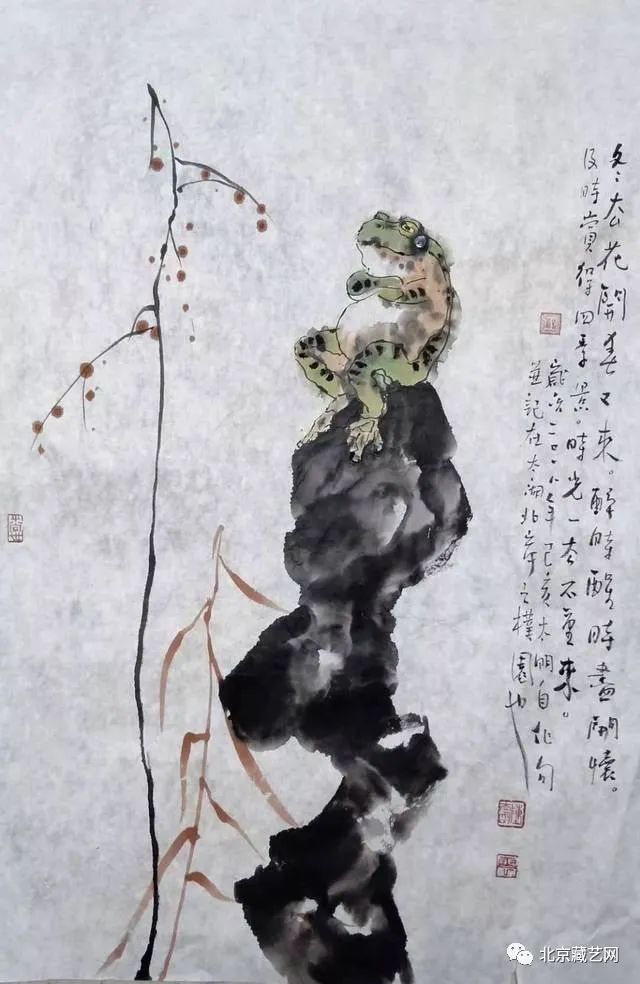 冬々去花開春又來。醉時醒時盡開懷。
及時賞得四季景。時光一去不重來。
歲次二〇一年己亥太明自作句
並記在太湖北岸之樸園也
北京藏艺网